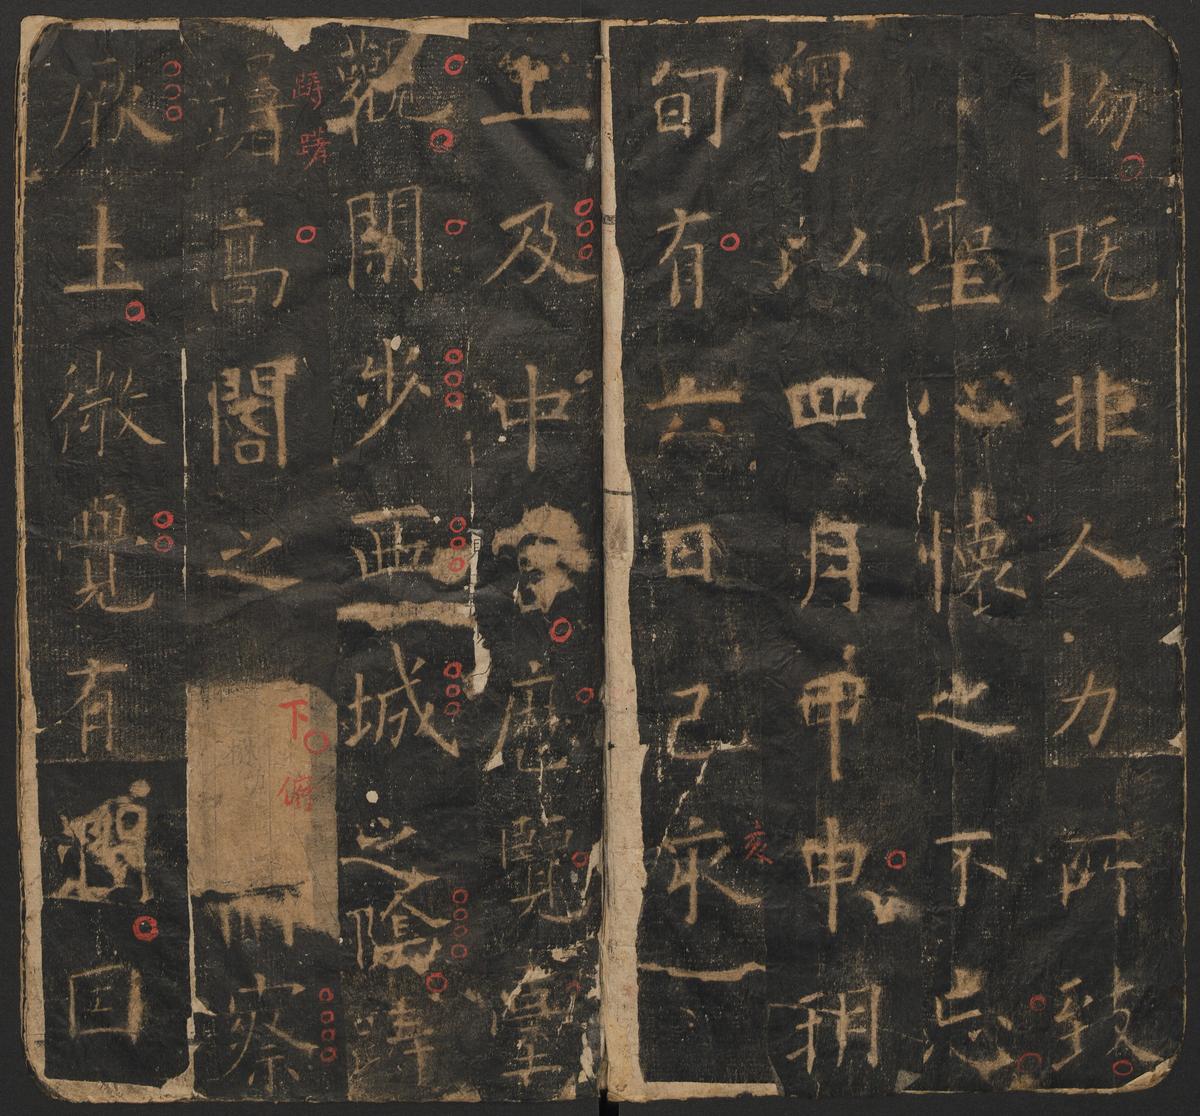 物既非人力所致
聖心懷之不忘
粵以四月甲申朔
旬有六日己亥
亥
上及中宮歷覽臺
觀閒步西城之陰躊
躊躇
躇高閣之下俯察
厥土微覺有潤因